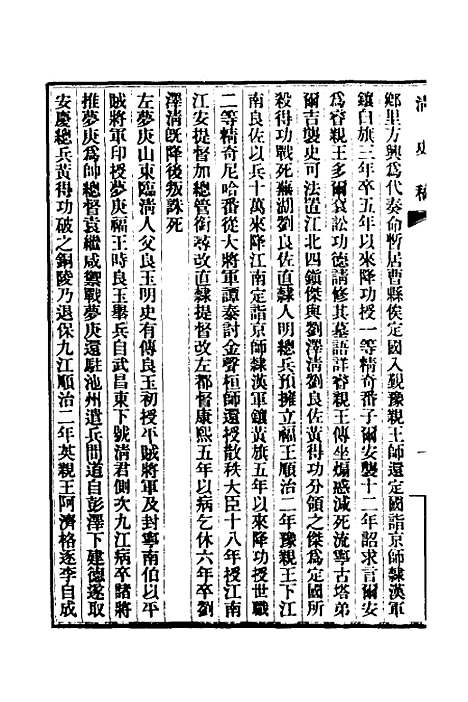 清史稿
鄉里方興爲代奏命暫居曹縣俟定國入覲豫親王師還定國詣京師隸漢軍
鑲白旗三年卒五年以來降功授一等精奇番子爾安襲十二年詔求言爾安
爲睿親王多爾袞訟功德請修其墓語詳睿親王傳坐煽惑減死流寧古塔弟
爾吉襲史可法置江北四鎮傑與劉澤清劉良佐黃得功分領之傑爲定國所
殺得功戰死蕪湖劉良佐直隸人明總兵預擁立福王順治二年豫親王下江
南良佐以兵十萬來降江南定詣京師隸漢軍鑲黃旗五年以來降功授世職
二等精奇尼哈番從大將軍譚泰討金聲桓師還授散秩大臣十八年授江南
江安提督加總管銜尋改直隸提督改左都督康熙五年以病乞休六年卒劉
澤清既降後叛誅死
左夢庚山東臨淸人父良玉明史有傳良玉初授平賊將軍及封寧南伯以平
賊將軍印授夢庚福王時良玉舉兵自武昌東下號清君側次九江病卒諸將
推夢庚爲帥總督袁繼咸禦戰夢庚還駐池州遣兵間道自彭澤下建德遂取
安慶總兵黃得功破之銅陵乃退保九江順治二年英親王阿濟格逐李自成